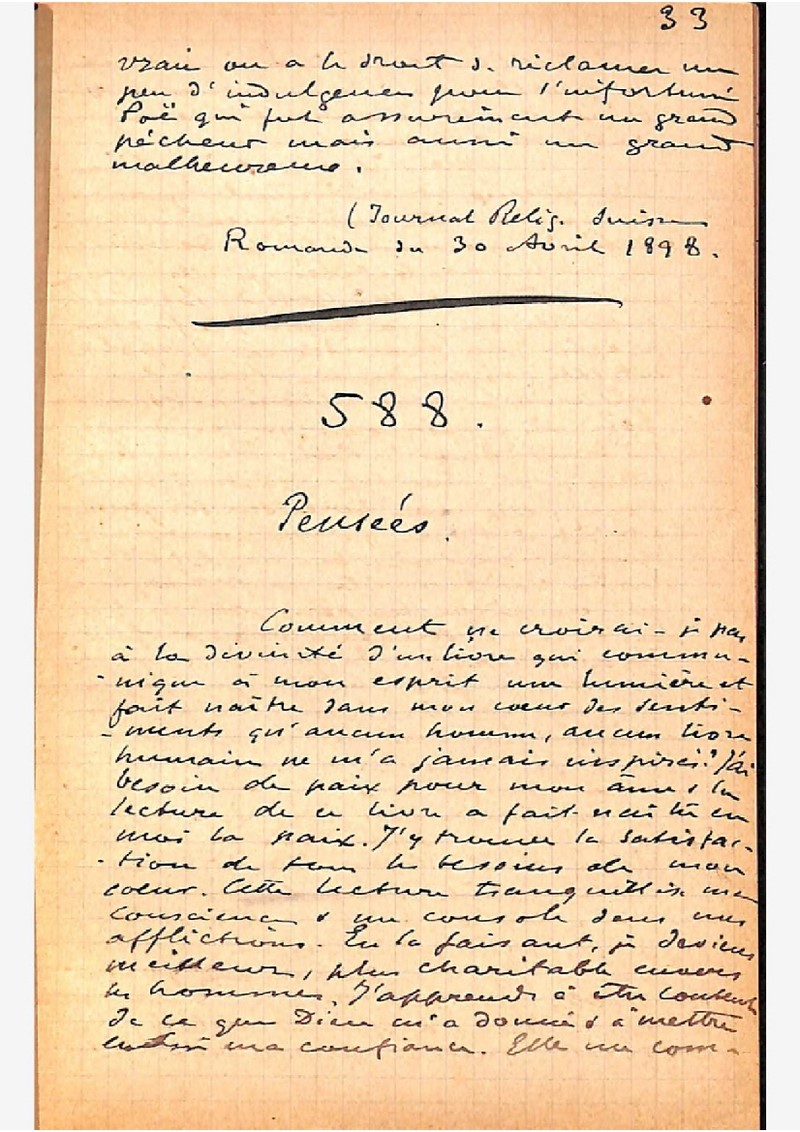 33
vrai on a le droit de réclamer un
peu d'indulgence pour l'infortuné
Poë qui fut assurément un grand
pécheur mais aussi un grand
malheureux.
(Journal Relig. Suisse
Romande du 30 Avril 1898.
588.
Pensées.
Comment ne croirai-je pas
à la divinité d'un livre qui commu-
-nique à mon esprit une lumière et
fait naître dans mon coeur des senti-
-ments qu'aucun homme, aucun livre
humain ne m'a jamais inspirés? J'ai
besoin de paix pour mon âme & la
lecture de ce livre a fait naître en
moi la paix. J'y trouve la satisfac-
-tion de tous les besoins de mon
coeur. Cette lecture tranquillise ma
conscience & me console dans mes
afflictions. En la faisant, je deviens
meilleur, plus charitable envers
les hommes. J'apprends à être content
de ce que Dieu m'a donné & à mettre
en lui ma confiance. Elle me com-